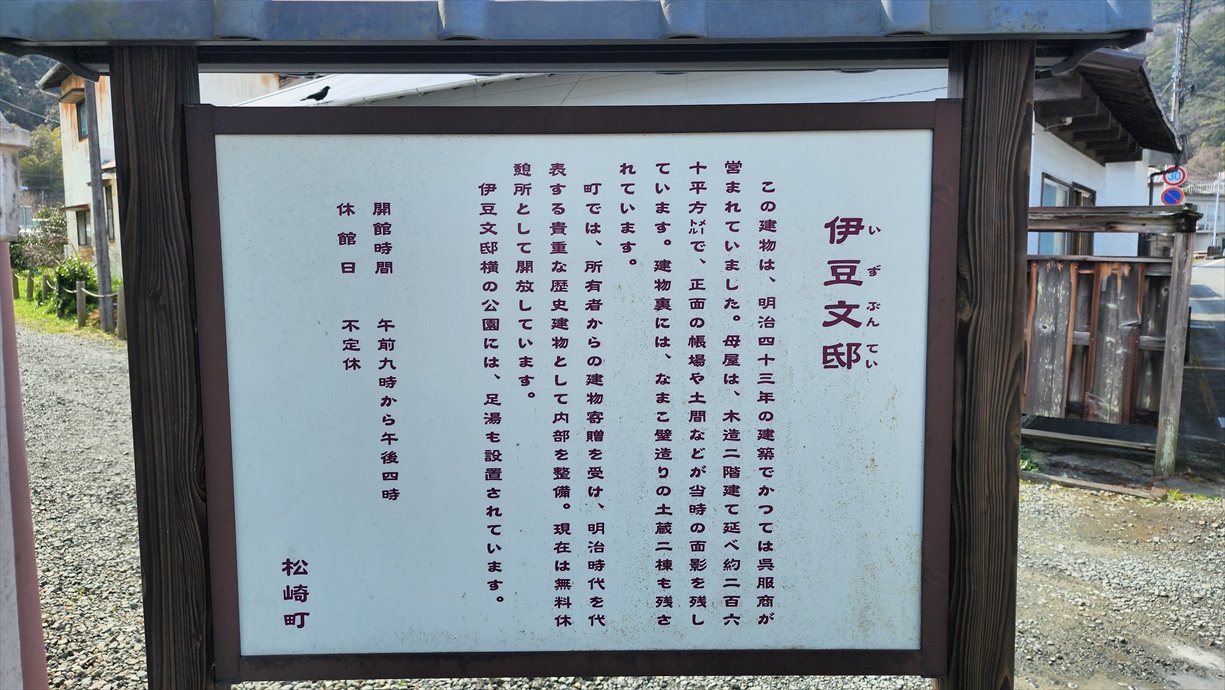 伊豆文邸
いずぶんてい
この建物は、明治四十三年の建築でかつては呉服商が
営まれていました。母屋は、木造二階建て延べ約二百六
十平方メートルで、正面の帳場や土間などが当時の面影を残し
ています。建物裏には、なまこ壁造りの土蔵二棟も残さ
れています。
町では、所有者からの建物寄贈を受け、明治時代を代
表する貴重な歴史建物として内部を整備。現在は無料休
憩所として開放しています。
伊豆文邸横の公園には、足湯も設置されています。
開館時間 午前九時から午後四時
休館日 不定休
松崎町
30